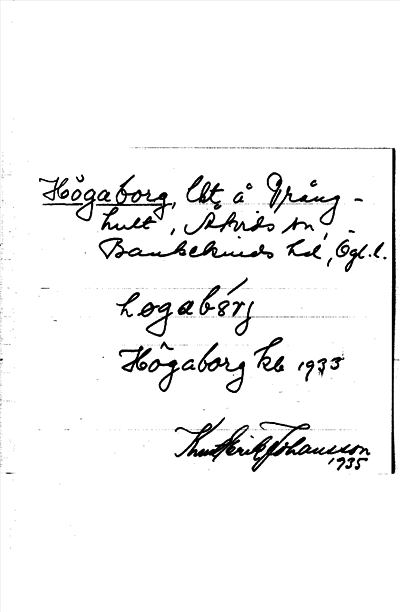 Högaborg, lht å Prång-
hult, Åtvids sn,
Bankekinds hd, Ögl.l.
högabórj
Högaborg kb 1933
Knut Erik Johansson
1935